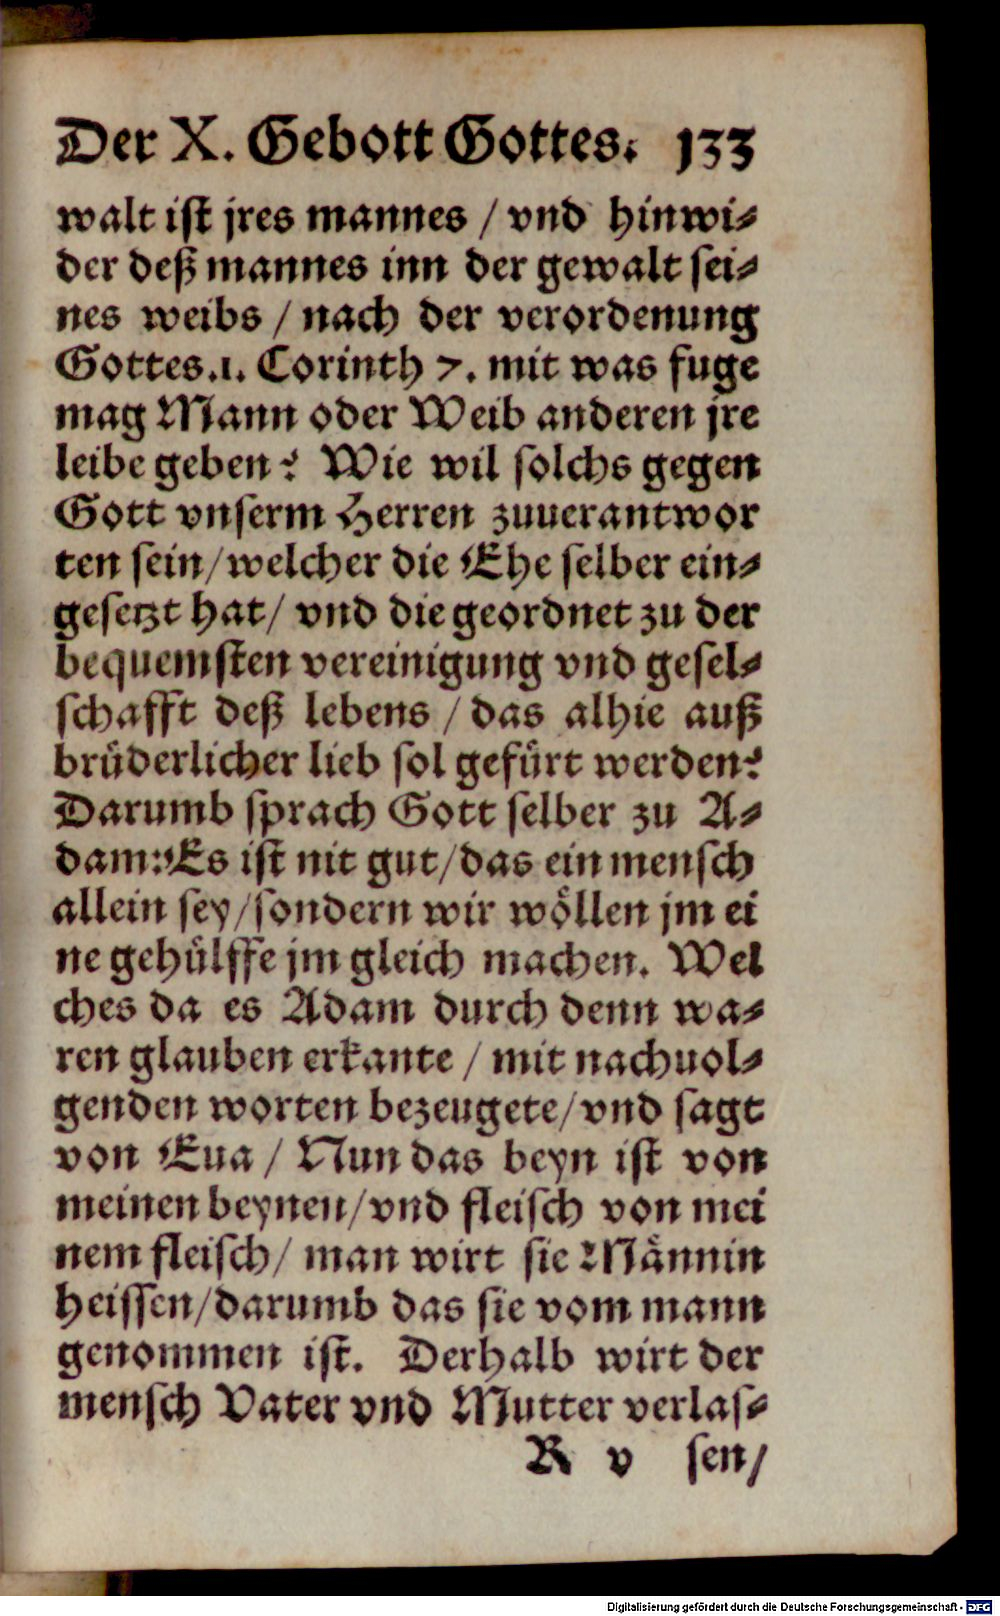 Der X. Gebott Gottes. 133
walt ist jres mannes / vnd hinwi-
der deß mannes inn der gewalt sei-
nes weibs / nach der verordenung
Gottes.1. Corinth 7. mit was fuge
mag Mann oder Weib anderen jre
leibe geben? Wie wil solchs gegen
Gott vnserm Herren zuuerantwor
ten sein/welcher die Ehe selber ein-
gesetzt hat/ vnd die geordnet zu der
bequemsten vereinigung vnd gesel-
schafft deß lebens / das alhie auß
brüderlicher lieb sol gefürt werden?
Darumb sprach Gott selber zu A-
dam: Es ist nit gut/das ein mensch
allein sey/sondern wir wöllen jm ei
ne gehülffe jm gleich machen. Wel
ches da es Adam durch denn wa-
ren glauben erkante / mit nachuol-
genden worten bezeugete/vnd sagt
von Eua / Nun das beyn ist von
meinen beynen/vnd fleisch von mei
nem fleisch/ man wirt sie Männin
heissen/darumb das sie vom mann
genommen ist. Derhalb wirt der
mensch Vater vnd Mutter verlas-
R v sen/
Digitalisierung gefördert durch die Deutsche Forschungsgemeinschaft - DFG